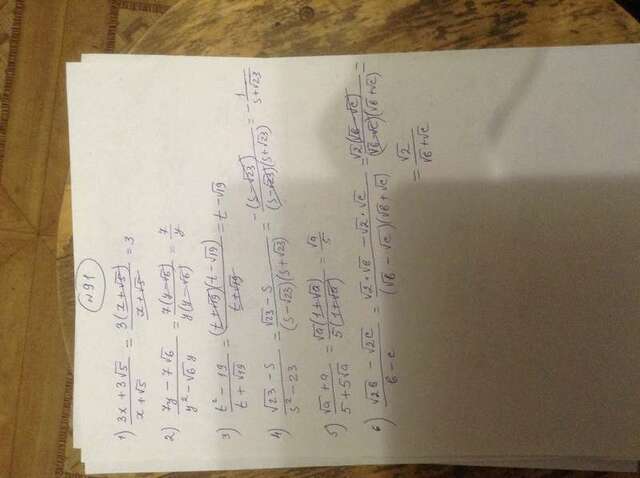 №91
1) (3x + 3√5)/(x + √5) = 3(x + √5)/(x + √5) = 3
2) (7y − 7√6)/(y² − √6y) = 7(y − √6)/(y(y − √6)) = 7/y
3) (t² − 19)/(t + √19) = (t + √19)(t − √19)/(t + √19) = t − √19
4) (√23 − s)/(s² − 23) = (√23 − s)/((s − √23)(s + √23)) = −(s − √23)/((s − √23)(s + √23)) = −1/(s + √23)
5) (√a + a)/(5 + 5√a) = √a(1 + √a)/(5(1 + √a)) = √a/5
6) (√2в − √2c)/(в − c) = (√2·√в − √2·√c)/((√в − √c)(√в + √c)) = √2(√в − √c)/((√в − √c)(√в + √c)) =
= √2/(√в + √c)